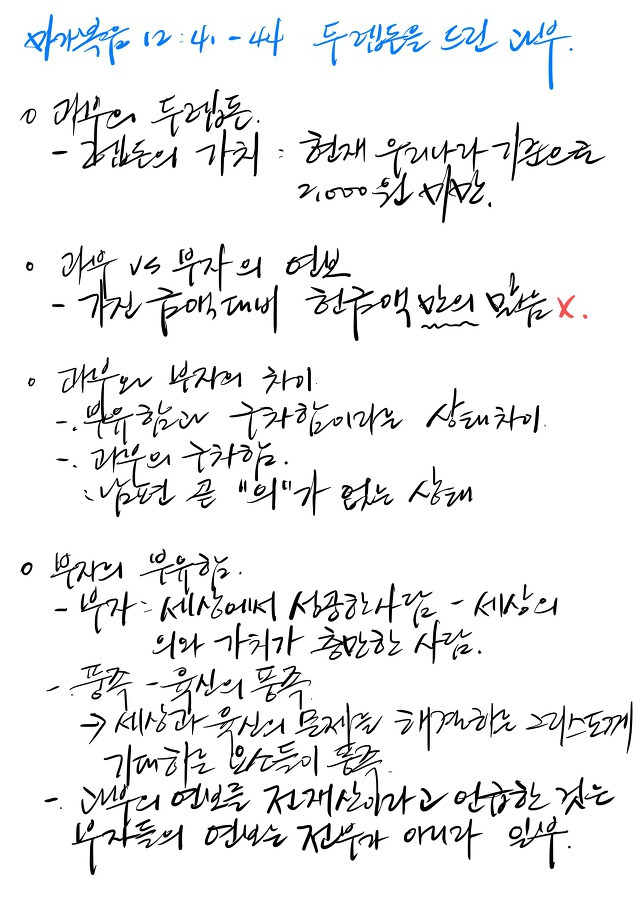 마가복음 12:41-44 두렙돈을 드린 과부.
○ 과부의 두렙돈.
- 2렙돈의 가치 : 현재 우리나라 기준으로
2,000원 미만.
○ 과부 vs 부자의 연보
- 가진 금액대비 헌금액만의 많음 X.
○ 과부와 부자의 차이
-. 부유함과 구차함이라는 상태차이
-. 과부의 구차함.
: 남편 곧 "의"가 없는 상태
○ 부자의 부유함.
- 부자 : 세상에서 성공한사람 - 세상의
의와 가치가 충만한 사람.
- 풍족 - 육신의 풍족
→ 세상과 육신의 문제를 해결하는 그리스도께
기대하는 요소들이 풍족
-. 과부의 연보를 전재산이라고 언급한 것은
부자들의 연보는 전부가 아니라 일부.